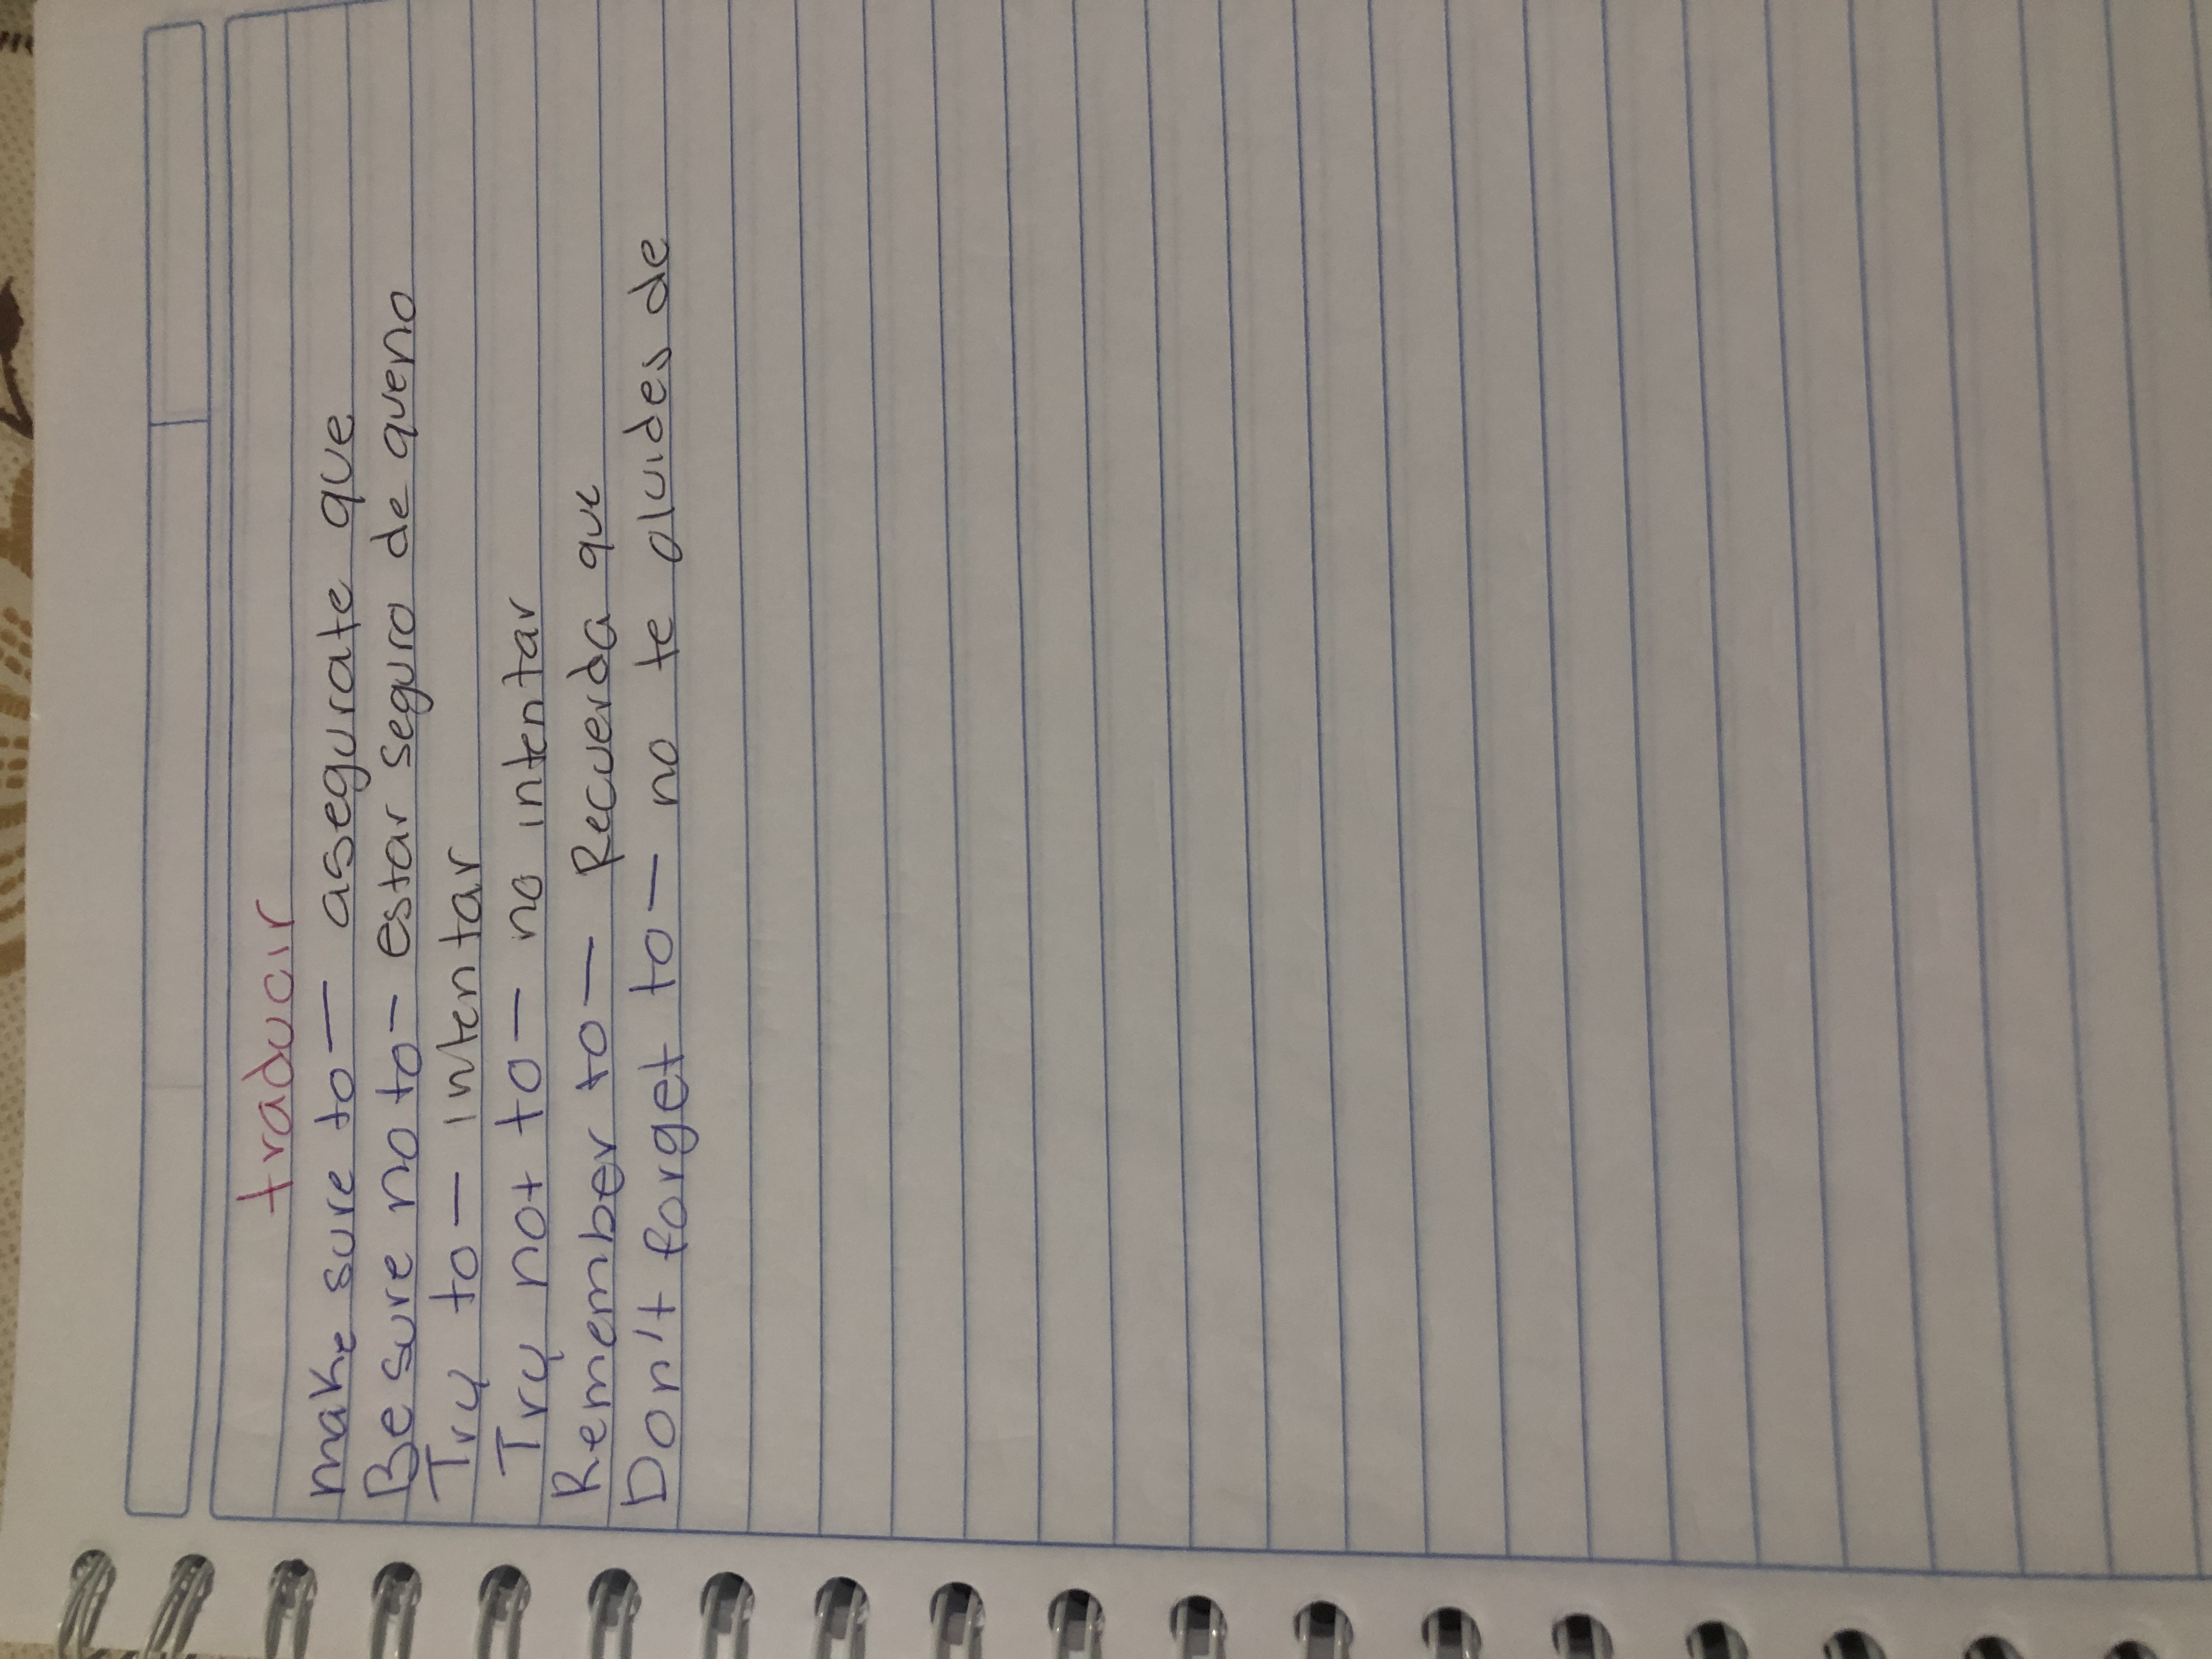 traducir
make sure to — asegurate que
Be sure no to - estar seguro de queno
Try to — intentar
Try not to — no intentar
Remember to — Recuerda que
Don't forget to — no te oluides de